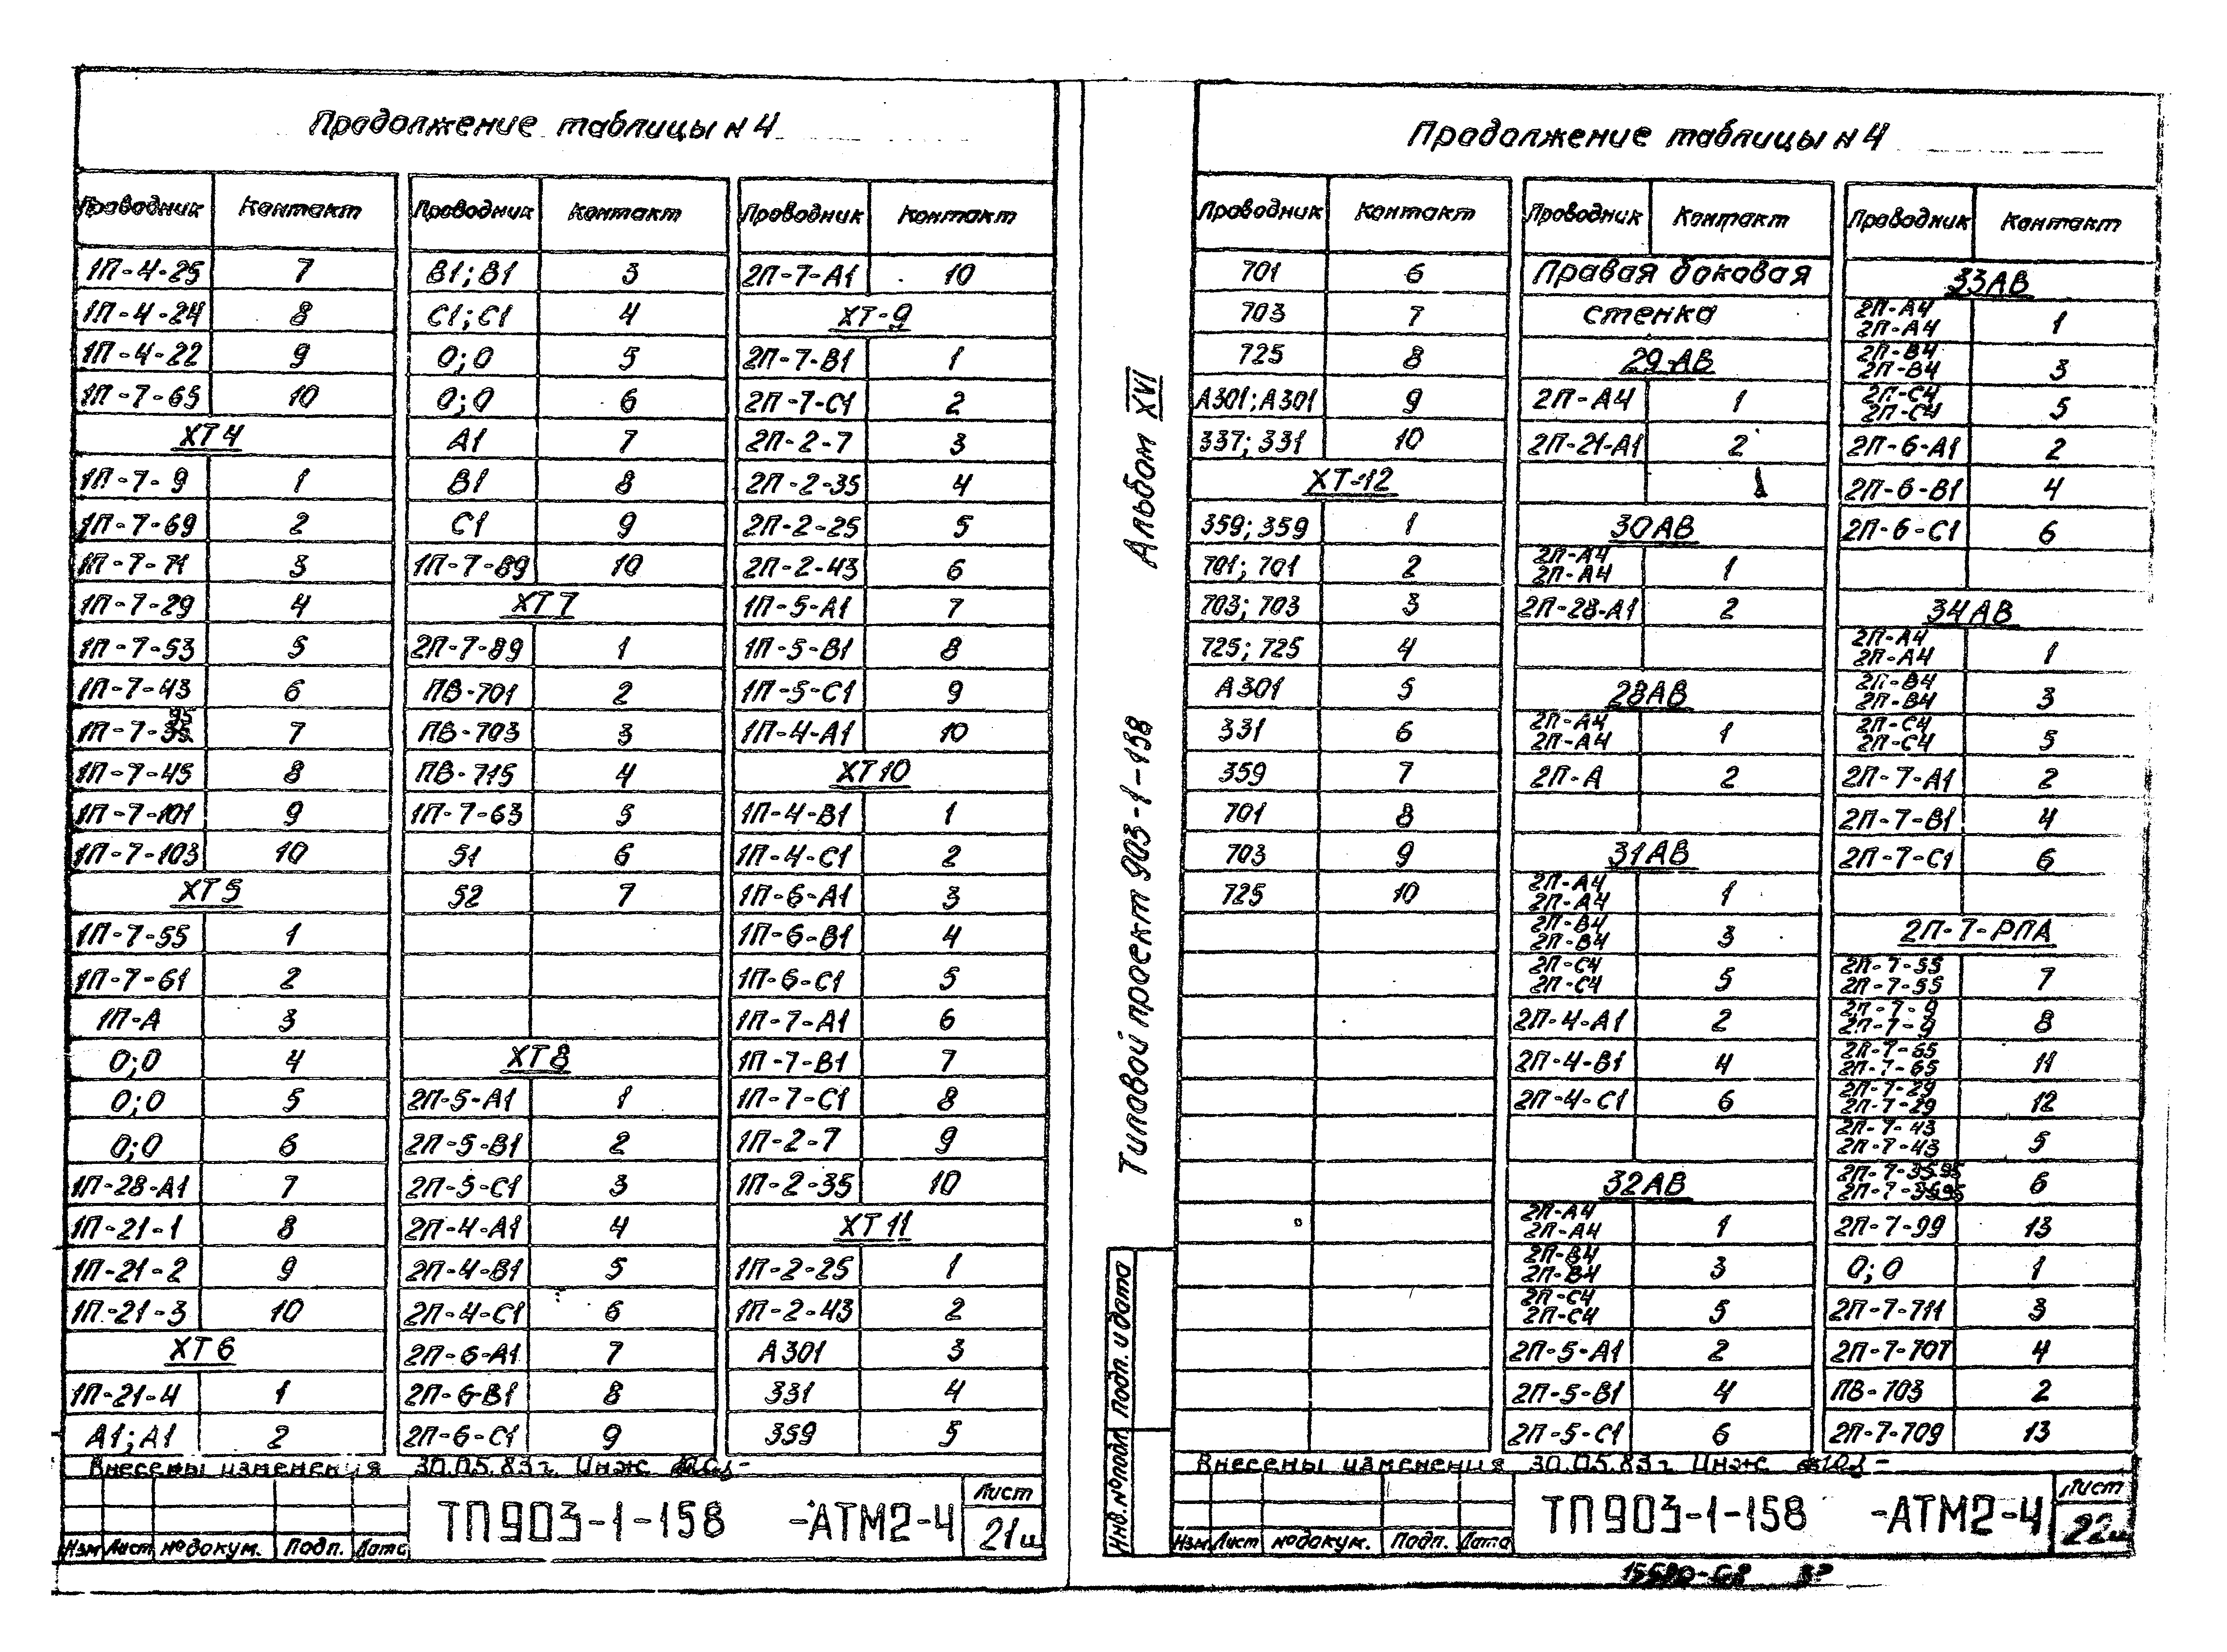 Продолжение таблицы н 4
Проводник Контакт
1П-4-25 7
1П-4-24 8
1П-4-22 9
1П-7-65 10
ХТ4
1П-7-9 1
1П-7-69 2
1П-7-71 3
1П-7-29 4
1П-7-53 5
1П-7-43 6
95
1П-7-35 7
1П-7-45 8
1П-7-101 9
1П-7-103 10
ХТ5
1П-7-55 1
1П-7-61 2
1П-А 3
0;0 4
0;0 5
0;0 6
1П-28-А1 7
1П-21-1 8
1П-21-2 9
1П-21-3 10
ХТ6
1П-21-4 1
А1;А1 2
Проводник Контакт
В1;В1 3
С1;С1 4
0;0 5
0;0 6
А1 7
В1 8
С1 9
1П-7-89 10
ХТ7
2П-7-89 1
ПВ-701 2
ПВ-703 3
ПВ-715 4
1П-7-63 5
51 6
52 7
ХТ8
2П-5-А1 1
2П-5-В1 2
2П-5-С1 3
2П-4-А1 4
2П-4-В1 5
2П-4-С1 6
2П-6-А1 7
2П-6-В1 8
2П-6-С1 9
Проводник Контакт
2П-7-А1 10
ХТ-9
2П-7-В1 1
2П-7-С1 2
2П-2-7 3
2П-2-35 4
2П-2-25 5
2П-2-43 6
1П-5-А1 7
1П-5-В1 8
1П-5-С1 9
1П-4-А1 10
ХТ10
1П-4-В1 1
1П-4-С1 2
1П-6-А1 3
1П-6-В1 4
1П-6-С1 5
1П-7-А1 6
1П-7-В1 7
1П-7-С1 8
1П-2-7 9
1П-2-35 10
ХТ11
1П-2-25 1
1П-2-43 2
А301 3
331 4
359 5
Внесены изменения 30.05.83г Инж
Изм Лист №докум. Подп. Дата
ТП903-1-158 -АТМ2-4
Лист
21и
Альбом XVI
Типовой проект 903-1-158
Подп. и дата
Инв.№подл
Продолжение таблицы н 4
Проводник Контакт
701 6
703 7
725 8
А301;А301 9
337;331 10
ХТ-12
359;359 1
701;701 2
703;703 3
725;725 4
А301 5
331 6
359 7
701 8
703 9
725 10
Проводник Контакт
Правая боковая
стенка
29-АВ
2П-А4 1
2П-21-А1 2
30АВ
2П-А4
2П-А4 1
2П-28-А1 2
28АВ
2П-А4
2П-А4 1
2П-А 2
31АВ
2П-А4
2П-А4 1
2П-В4
2П-В4 3
2П-С4
2П-С4 5
2П-4-А1 2
2П-4-В1 4
2П-4-С1 6
32АВ
2П-А4
2П-А4 1
2П-В4
2П-В4 3
2П-С4
2П-С4 5
2П-5-А1 2
2П-5-В1 4
2П-5-С1 6
Проводник Контакт
33АВ
2П-А4
2П-А4 1
2П-В4
2П-В4 3
2П-С4
2П-С4 5
2П-6-А1 2
2П-6-В1 4
2П-6-С1 6
34АВ
2П-А4
2П-А4 1
2П-В4
2П-В4 3
2П-С4
2П-С4 5
2П-7-А1 2
2П-7-В1 4
2П-7-С1 6
2П-7-РПА
2П-7-55
2П-7-55 7
2П-7-9
2П-7-9 8
2П-7-65
2П-7-65 11
2П-7-29
2П-7-29 12
2П-7-43
2П-7-43 5
2П-7-35 95
2П-7-35 95 6
2П-7-99 13
0;0 1
2П-7-711 3
2П-7-707 4
ПВ-703 2
2П-7-709 13
Внесены изменения 30.05.83г Инж
Изм Лист №докум. Подп. Дата
ТП903-1-158 -АТМ2-4
Лист
22и